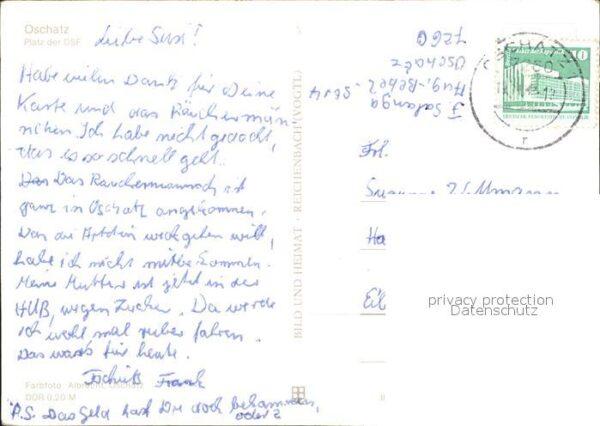 Oschatz
Platz der DSF
Liebe Susi!
Habe vielen Dank für Deine
Karte und das Räuchermän-
nchen. Ich habe nicht gedacht,
das es so schnell geht.
Das Räuchermannsch ist
ganz in Oschatz angekommen.
Das die weggehen will,
habe ich nicht mitbekommen.
Meine Mutter ist jetzt in der
wegen Zucker. Da werde
ich wohl mal rüber fahren.
Das wars für heute.
Tschüß Frank
Farbfoto: Albrecht, Oschatz
DDR 0,20 M
P.S. Das Geld hast Du doch bekommen,
oder?
BILD UND HEIMAT · REICHENBACH (VOGTL)
7260
Oschatz
Aug.-Bebel-Str. 4
OSCHATZ
10
Frl.
Ha
Eil
privacy protection
Datenschutz